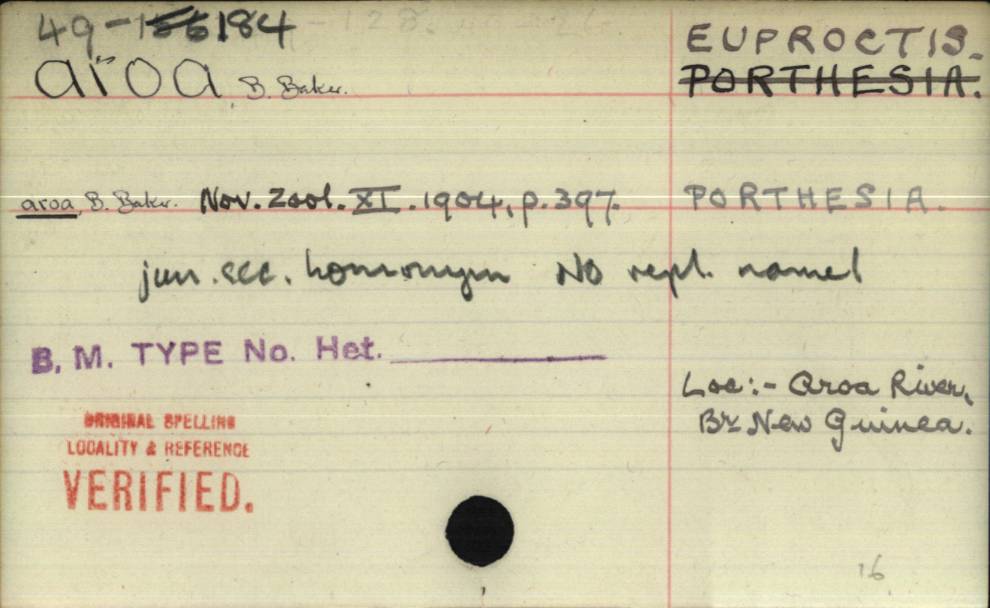 49-184
EUPROCTIS.
aroa B. Baker.
PORTHESIA.
aroa, B. Baker. Nov. Zool. XI. 1904, p.397. PORTHESIA.
jun. sec. homonym NO repl. name!
B. M. TYPE No. Het.
Loc:- Aroa River,
Br. New Guinea.
ORIGINAL SPELLING
LOCALITY & REFERENCE
VERIFIED.
16